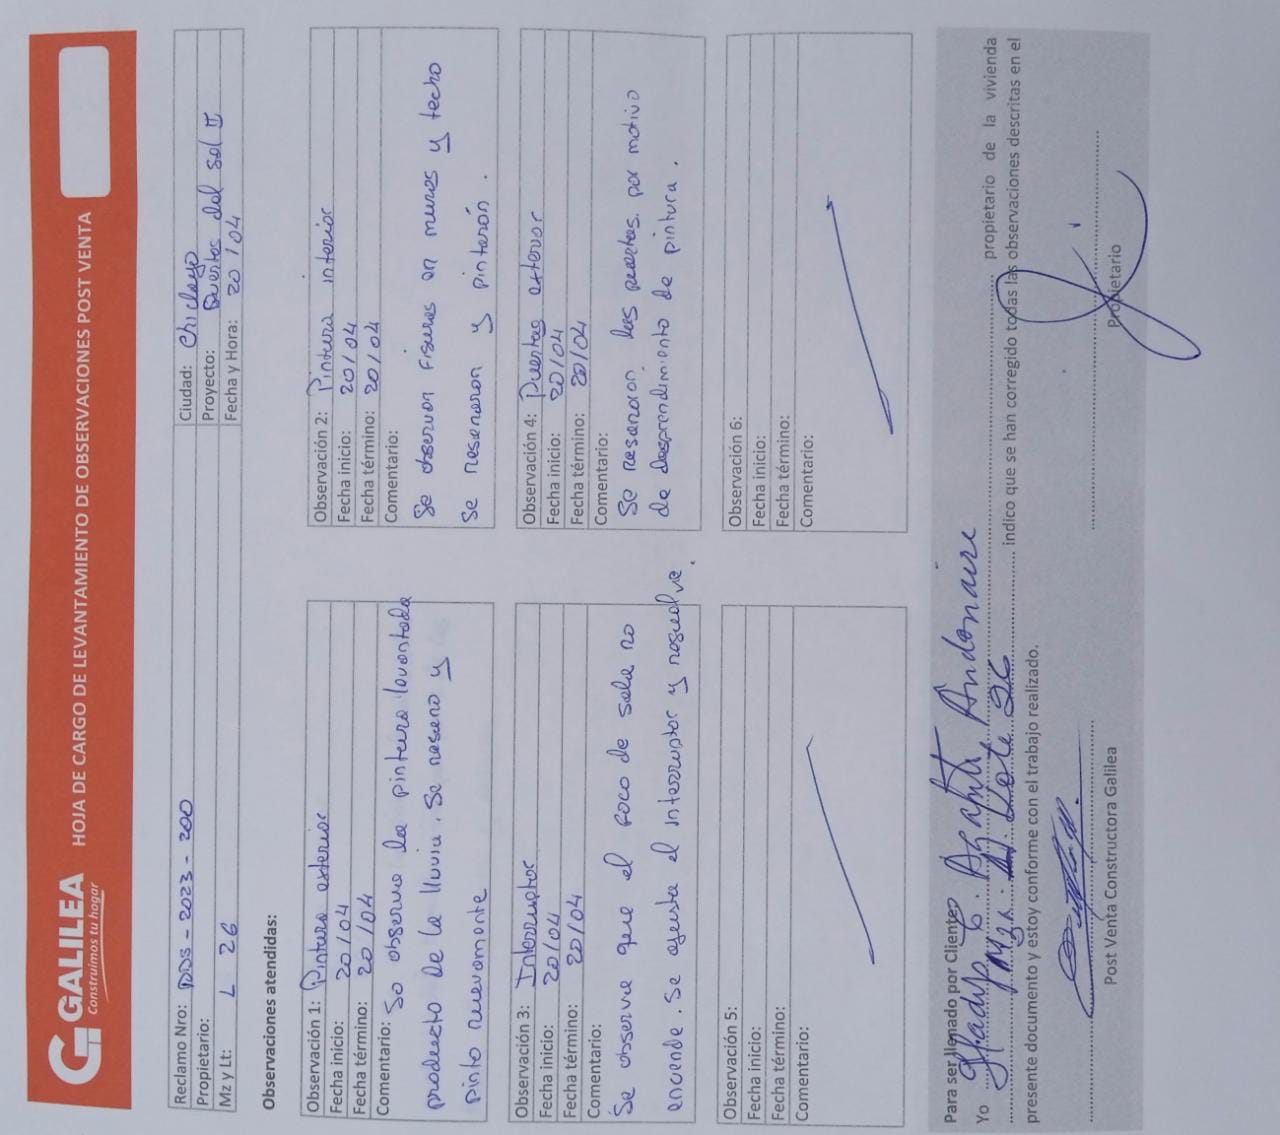 GALILEA
Construimos tu hogar
HOJA DE CARGO DE LEVANTAMIENTO DE OBSERVACIONES POST VENTA
Reclamo Nro: PDS - 2023 - 200
Propietario:
Mz y Lt: L 26
Ciudad: Chiclayo
Proyecto: Puertas del sol II
Fecha y Hora: 20/04
Observaciones atendidas:
Observación 1: Pintura exterior
Fecha inicio: 20/04
Fecha término: 20/04
Comentario: So observa la pintura levantada
producto de la lluvia. Se resano y
pinto nuevamente
Observación 2: Pintura interior
Fecha inicio: 20/04
Fecha término: 20/04
Comentario:
Se observan fisuras en muros y techo
Se resanaron y pintarón.
Observación 3: Interruptor
Fecha inicio: 20/04
Fecha término: 20/04
Comentario:
Se observa que el foco de sala no
enciende. Se ajusta el interruptor y resuelve.
Observación 4: Puertas exterior
Fecha inicio: 20/04
Fecha término: 20/04
Comentario:
Se resanaron las puertas por motivo
de desprendimiento de pintura.
Observación 5:
Fecha inicio:
Fecha término:
Comentario:
Observación 6:
Fecha inicio:
Fecha término:
Comentario:
Para ser llenado por Cliente
Yo Gladys Agapito Andonaire propietario de la vivienda
Mza. Lote 26 indico que se han corregido todas las observaciones descritas en el
presente documento y estoy conforme con el trabajo realizado.
Post Venta Constructora Galilea
Propietario